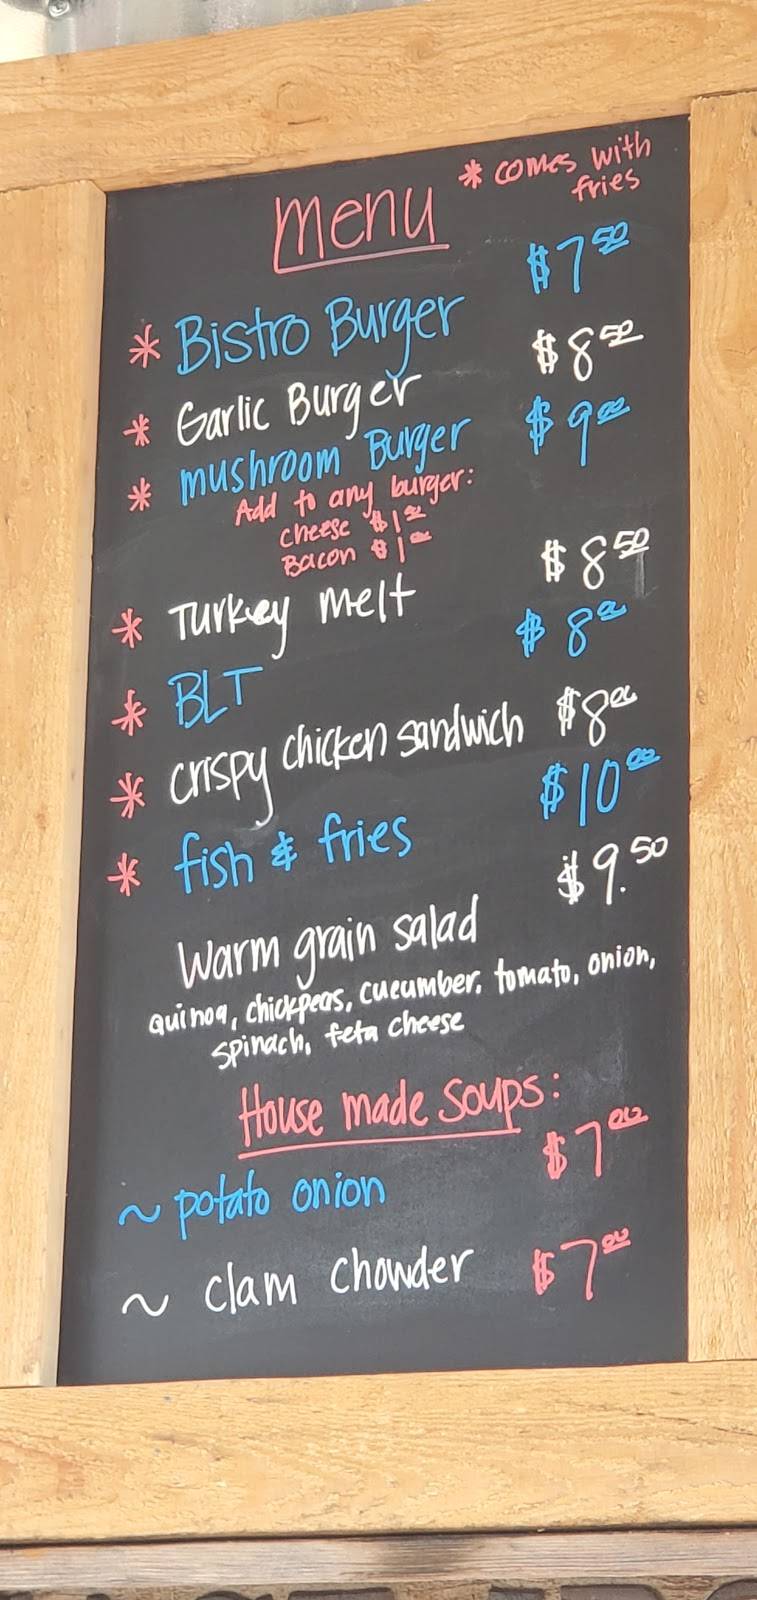 Menu * comes with
fries
* Bistro Burger $7.50
* Garlic Burger $8.50
* mushroom Burger $9.00
Add to any burger:
cheese $1.50
Bacon $1.00
* Turkey melt $8.50
* BLT $8.00
* crispy chicken sandwich $8.00
* fish & fries $10.00
Warm grain salad $9.50
quinoa, chickpeas, cucumber, tomato, onion,
spinach, feta cheese
House made soups:
~ potato onion $7.00
~ clam chowder $7.00